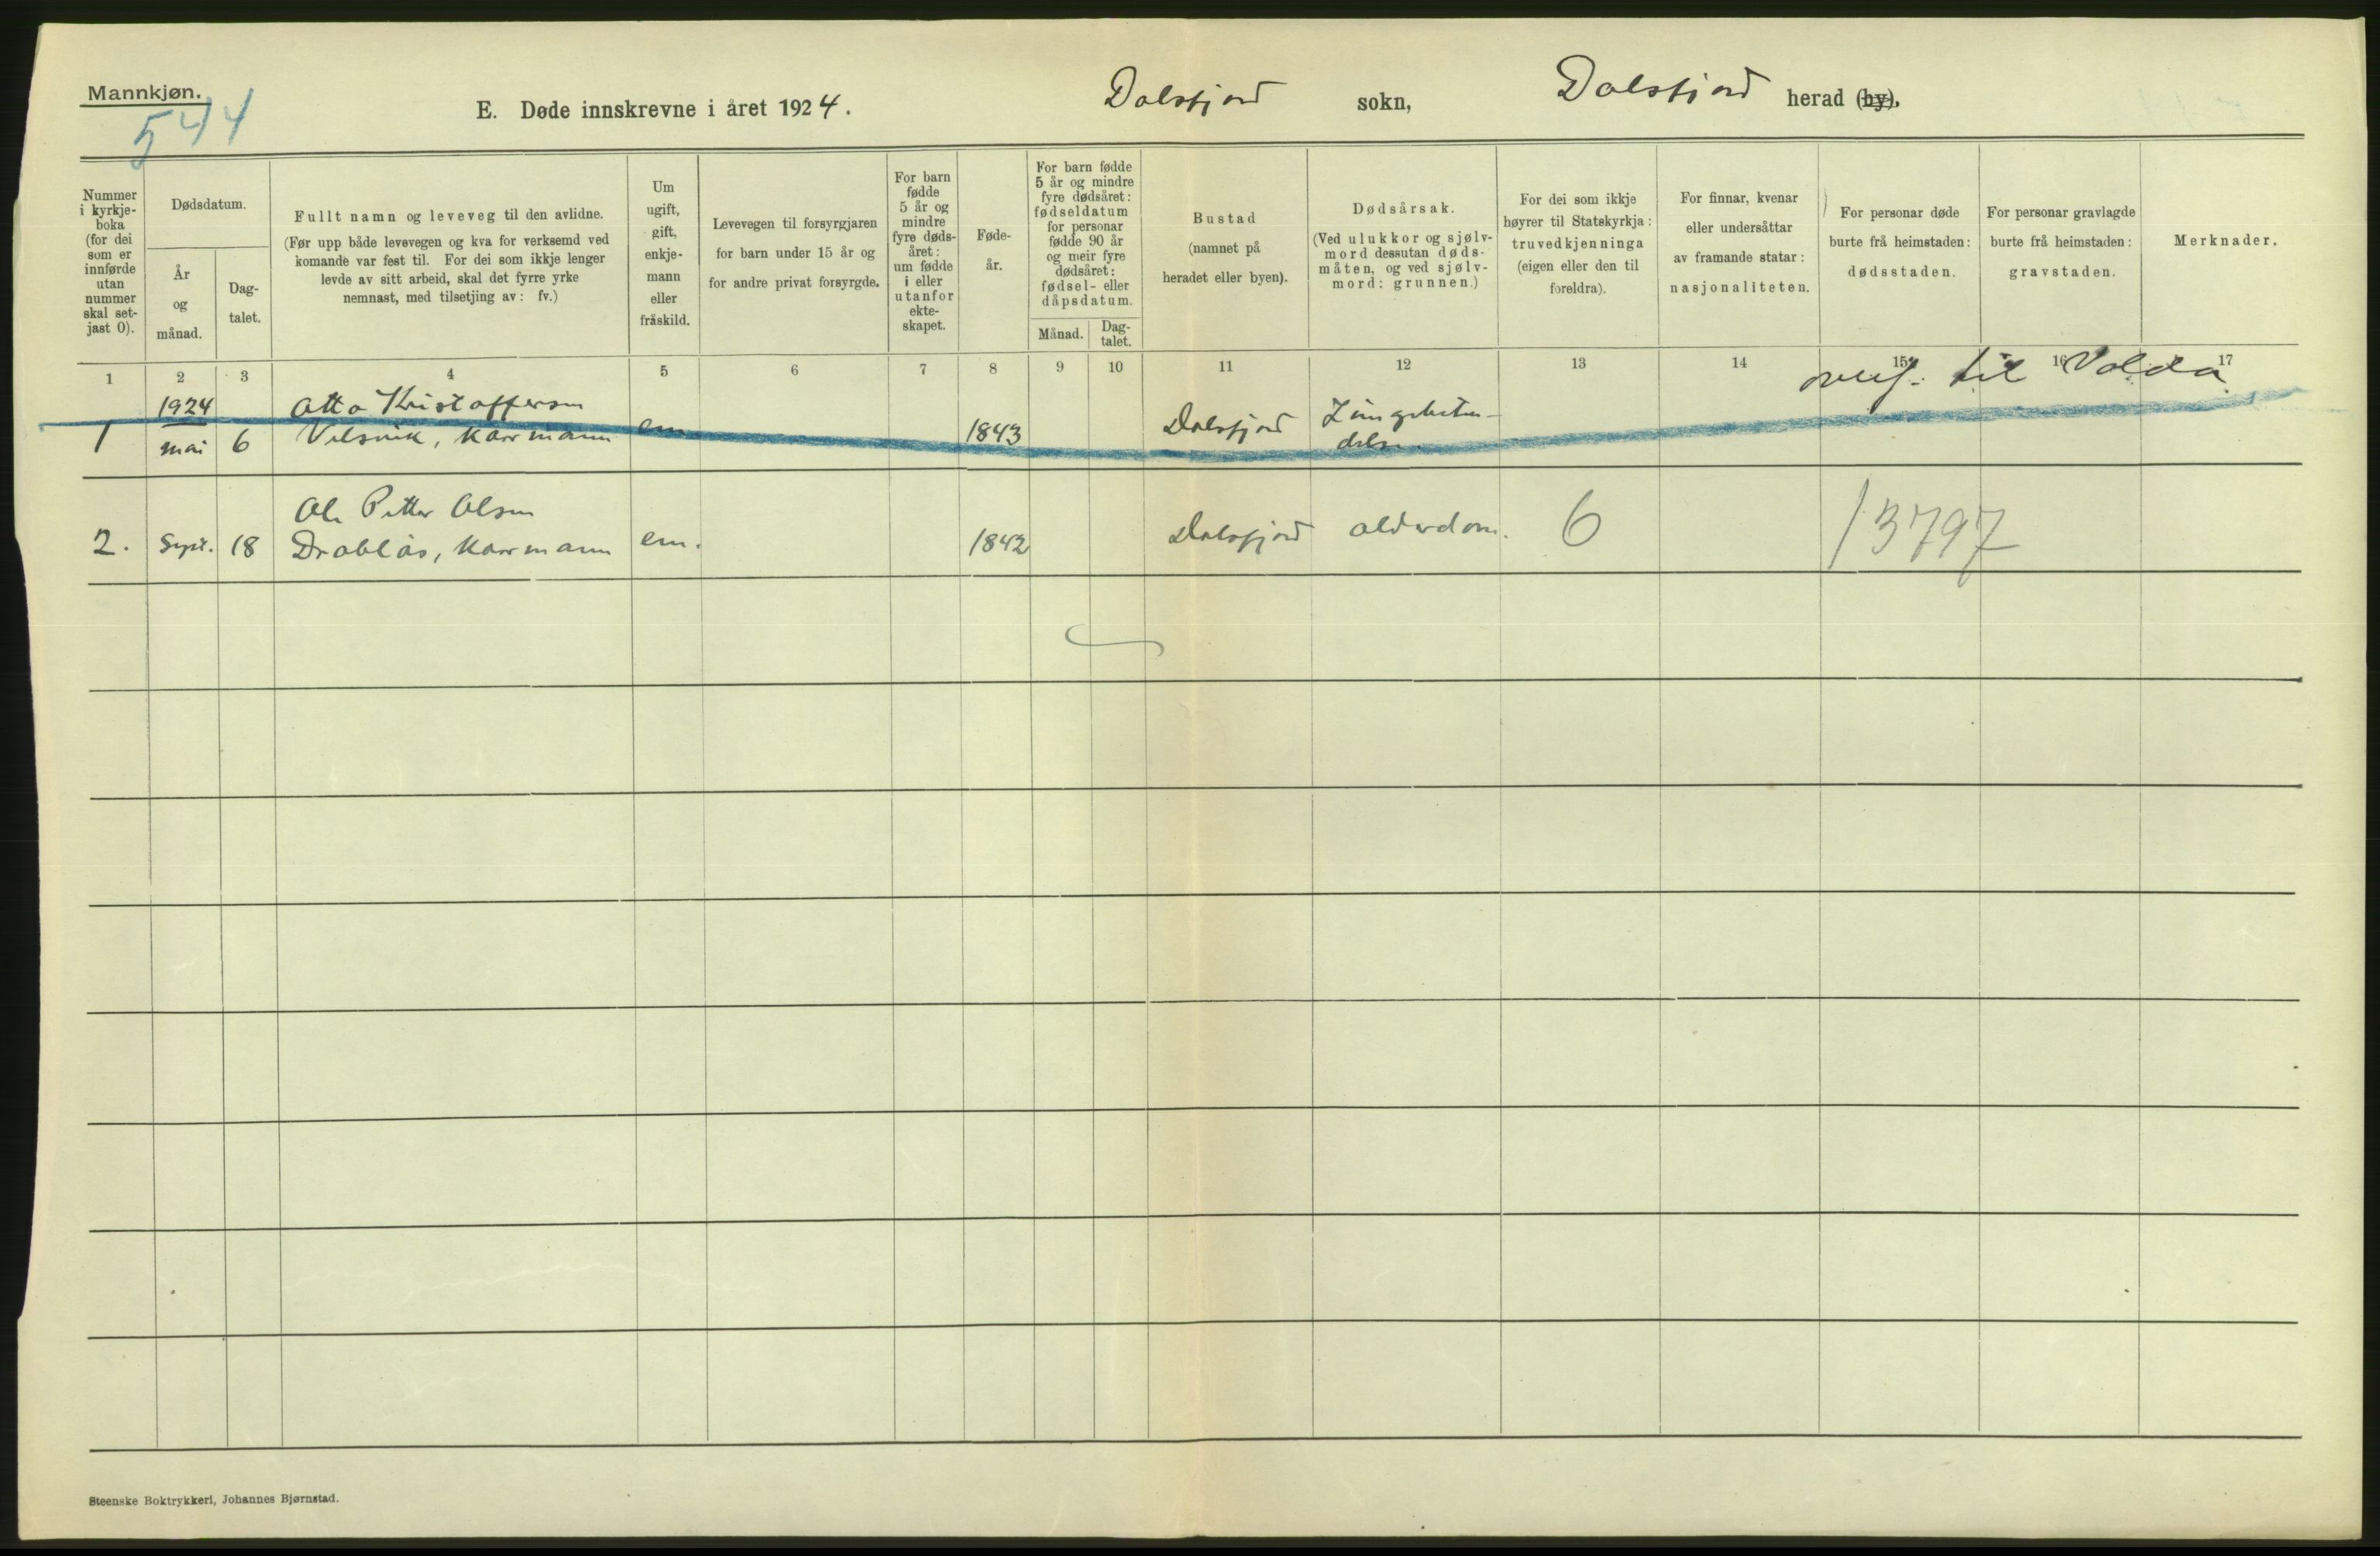 Mannkjøn.
544
E. Døde innskrevne i året 1924.
Dalsfjord sokn,
Dalsfjord herad (by).
Nummer
i kyrkje-
boka
(for dei
som er
innførde
utan
nummer
skal set-
jast 0).
Dødsdatum.
År
og
månad.
Dag-
talet.
Fullt namn og leveveg til den avlidne.
(Før upp både levevegen og kva for verksemd ved
komande var fest til. For dei som ikkje lenger
levde av sitt arbeid, skal det fyrre yrke
nemnast, med tilsetjing av: fv.)
Um
ugift,
gift,
enkje-
mann
eller
fråskild.
Levevegen til forsyrgjaren
for barn under 15 år og
for andre privat forsyrgde.
For barn
fødde
5 år og
mindre
fyre døds-
året:
um fødde
i eller
utanfor
ekte-
skapet.
Føde-
år.
For barn fødde
5 år og mindre
fyre dødsåret:
fødseldatum
for personar
fødde 90 år
og meir fyre
dødsåret:
fødsel- eller
dåpsdatum.
Månad.
Dag-
talet.
Bustad
(namnet på
heradet eller byen).
Dødsårsak.
(Ved ulukkor og sjølv-
mord dessutan døds-
måten, og ved sjølv-
mord: grunnen.)
For dei som ikkje
høyrer til Statskyrkja:
truvedkjenninga
(eigen eller den til
foreldra).
For finnar, kvenar
eller undersåttar
av framande statar:
nasjonaliteten.
For personar døde
burte frå heimstaden:
dødsstaden.
For personar gravlagde
burte frå heimstaden:
gravstaden.
Merknader.
1 2 3 4 5 6 7 8 9 10 11 12 13 14 15 16 17
overf. til Volda
1924 Otto Kristoffersen
1 mai 6 Velsvik, kårmann em 1843 Dalsfjord Lungebeten-
delse.
Ole Petter Olsen
2. Sept. 18 Drabløs, kårmann em. 1842 Dalsfjord alderdom. 6 13797
Steenske Boktrykkeri, Johannes Bjørnstad.